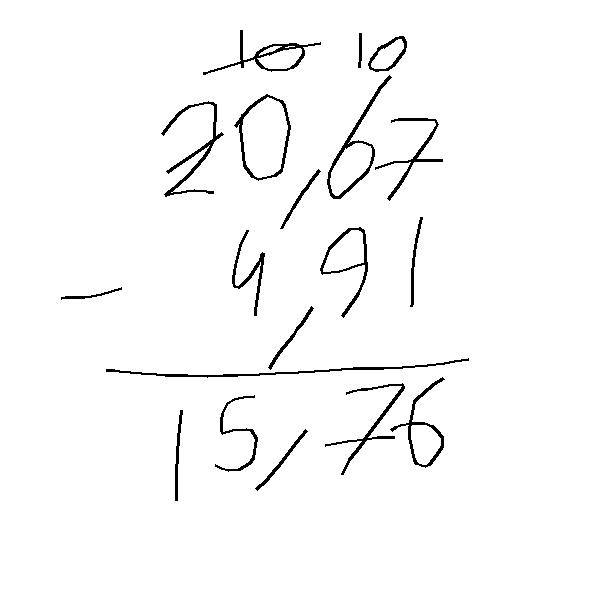 10 10
20,67
- 4,91
15,76